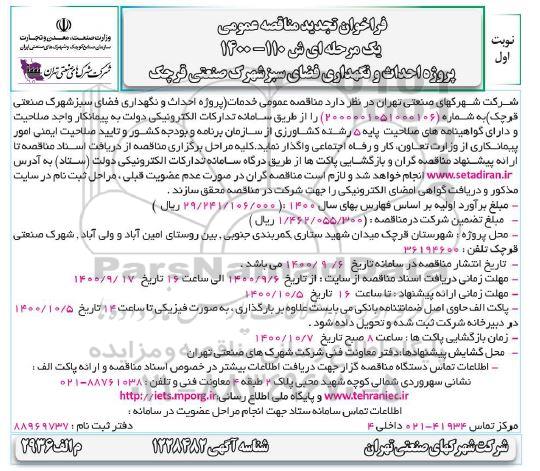 وزارت صنعت، معدن و تجارت
سازمان صنایع کوچک و شهرکهای صنعتی ایران
شرکت شهرکهای صنعتی تهران
فراخوان تجدید مناقصه عمومی
یک مرحله ای ش ۱۱۰ - ۱۴۰۰
پروژه احداث و نگهداری فضای سبز شهرک صنعتی قرچک
نوبت
اول
شرکت شهرکهای صنعتی تهران در نظر دارد مناقصه عمومی خدمات (پروژه احداث و نگهداری فضای سبز شهرک صنعتی
قرچک) به شماره (۲۰۰۰۰۰۱۰۵۱۰۰۰۱۰۶) را از طریق سامانه تدارکات الکترونیکی دولت به پیمانکار واجد صلاحیت
و دارای گواهینامه های صلاحیت پایه ۵ رشته کشاورزی از سازمان برنامه و بودجه کشور و تایید صلاحیت ایمنی امور
پیمانکاری از وزارت تعاون، کار و رفاه اجتماعی واگذار نماید. کلیه مراحل برگزاری مناقصه از دریافت اسناد مناقصه تا
ارائه پیشنهاد مناقصه گران و بازگشایی پاکت ها از طریق درگاه سامانه تدارکات الکترونیکی دولت (ستاد) به آدرس
www.setadiran.ir انجام خواهد شد و لازم است مناقصه گران در صورت عدم عضویت قبلی، مراحل ثبت نام در سایت
مذکور و دریافت گواهی امضای الکترونیکی را جهت شرکت در مناقصه محقق سازند.
- مبلغ برآورد اولیه بر اساس فهارس بهای سال ۱۴۰۰ : ( ۲۹/۲۴۱/۱۰۶/۰۰۰ ریال )
- مبلغ تضمین شرکت در مناقصه : (۱/۴۶۲/۰۵۵/۳۰۰ ریال )
- محل پروژه : شهرستان قرچک میدان شهید ستاری ،کمربندی جنوبی ، بین روستای امین آباد و ولی آباد ، شهرک صنعتی
قرچک تلفن : ۳۶۱۹۴۶۰۰
- تاریخ انتشار مناقصه در سامانه تاریخ ۱۴۰۰/۹/۶ می باشد .
- مهلت زمانی دریافت اسناد مناقصه از سایت : از تاریخ ۱۴۰۰/۹/۶ الی ساعت ۱۶ تاریخ ۱۴۰۰/۹/۱۷
- مهلت زمانی ارائه پیشنهاد : تا ساعت ۱۶ تاریخ ۱۴۰۰/۱۰/۵
- پاکت الف حاوی اصل ضمانتنامه بانکی می بایست علاوه بر بارگذاری ، به صورت فیزیکی تا ساعت ۱۴ تاریخ ۱۴۰۰/۱۰/۵
در دبیرخانه شرکت ثبت شده و تحویل داده شود .
- زمان بازگشایی پاکت ها : ساعت ۸ صبح تاریخ ۱۴۰۰/۱۰/۷
- محل گشایش پیشنهادها: دفتر معاونت فنی شرکت شهرک های صنعتی تهران
- اطلاعات تماس دستگاه مناقصه گزار جهت دریافت اطلاعات بیشتر در خصوص اسناد مناقصه و ارائه پاکت الف :
نشانی سهروردی شمالی کوچه شهید محبی پلاک ۲ طبقه ۴ معاونت فنی و تلفن : ۸۸۷۶۱۰۳۸-۰۲۱
www.tehraniec.ir و پایگاه ملی اطلاع رسانی: http://iets.mporg.ir
اطلاعات تماس سامانه ستاد جهت انجام مراحل عضویت در سامانه :
مرکز تماس ۴۱۹۳۴-۰۲۱ داخلی ۴ دفتر ثبت نام : ۸۸۹۶۹۷۳۷
شرکت شهرکهای صنعتی تهران شناسه آگهی ۱۲۲۸۴۸۲ م الف ۲۹۳۶